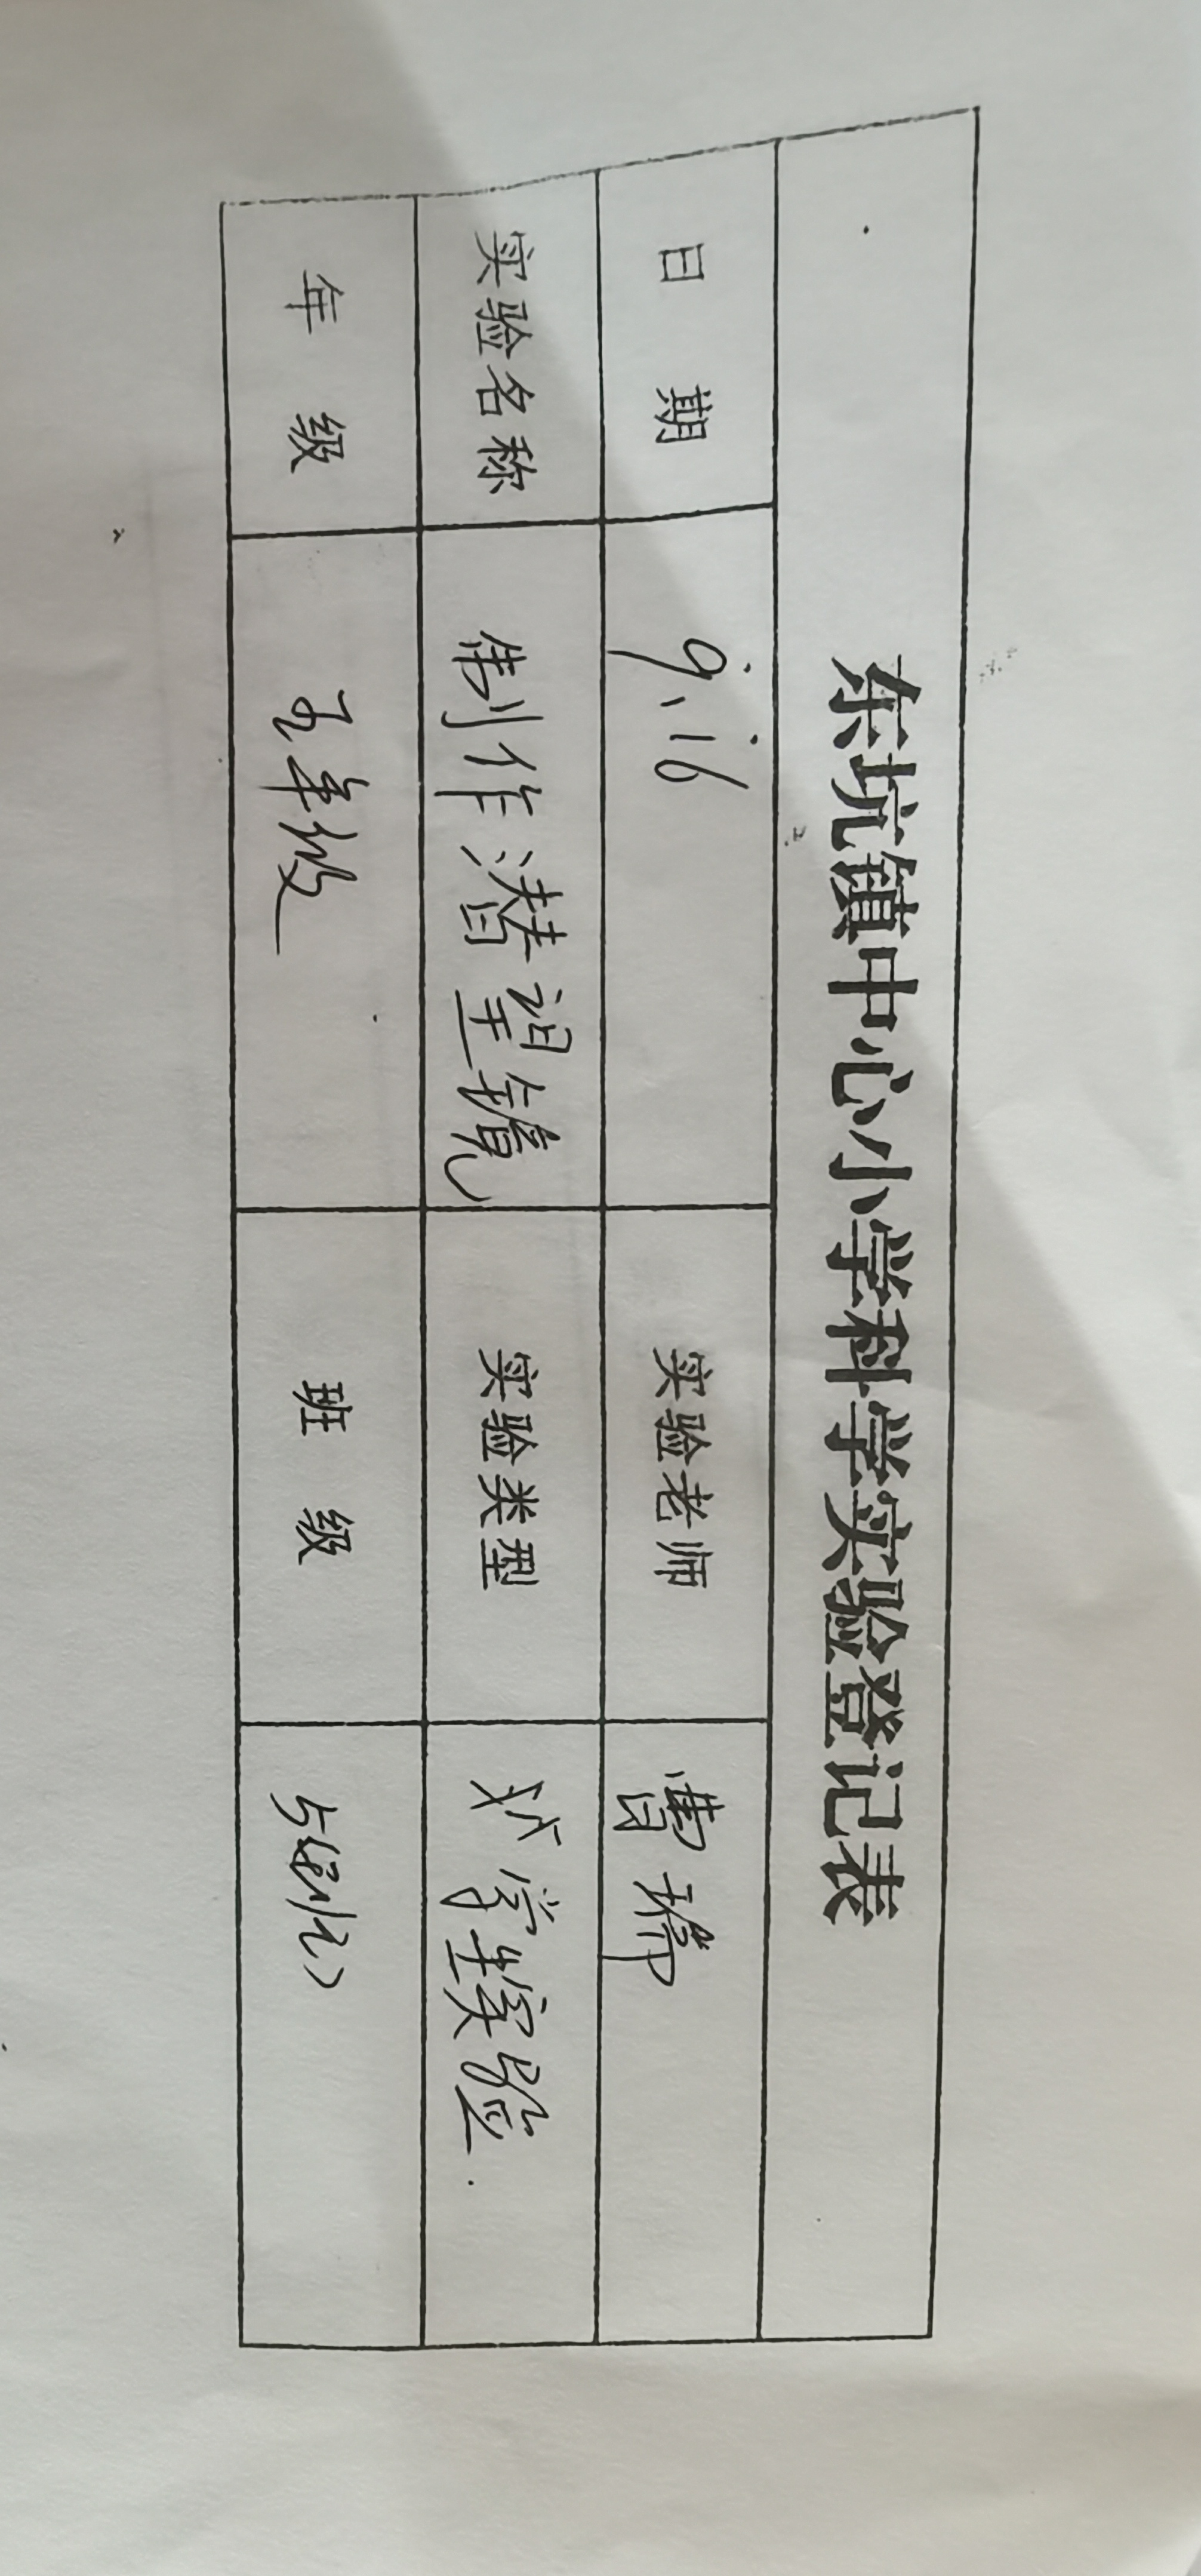 东坑镇中心小学科学实验登记表
日期 9.16 实验老师 曹瑜
实验名称 制作潜望镜 实验类型 分学生实验.
年级 五年级 班级